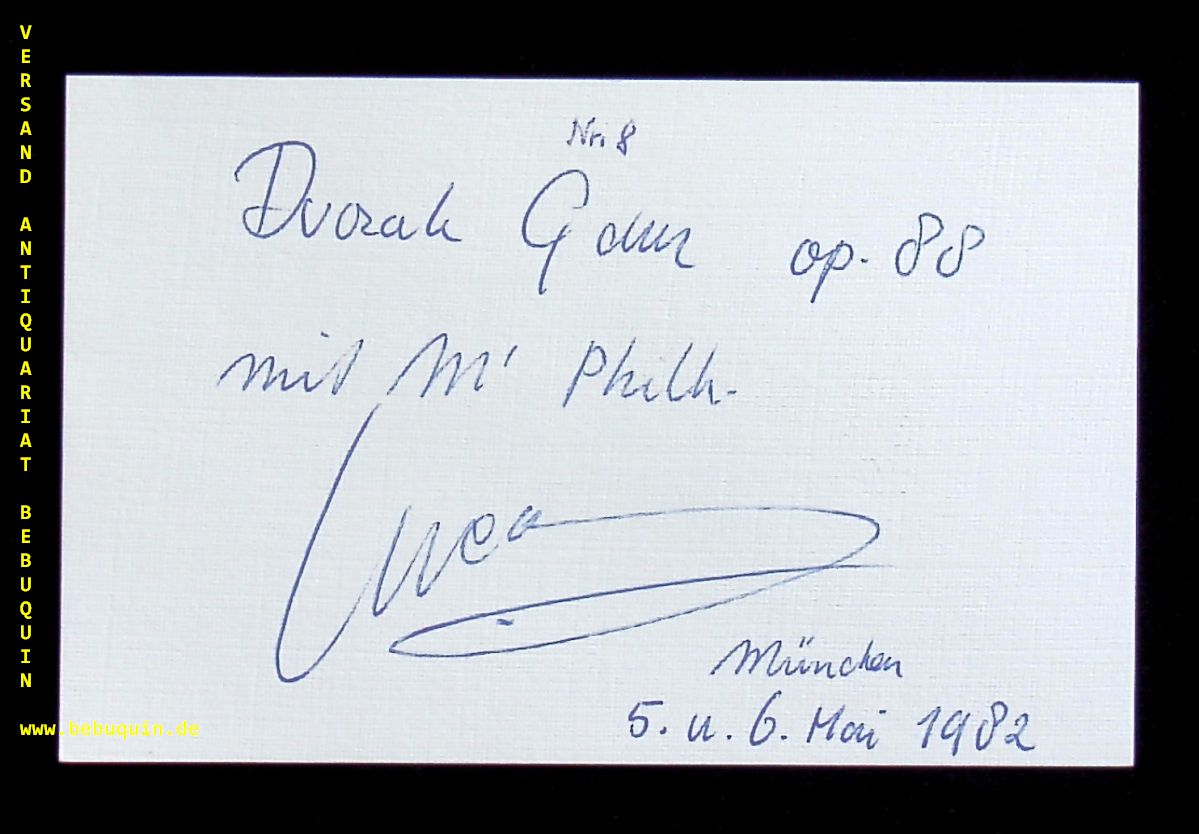 VERSAND ANTIQUARIAT BEBUQUIN
www.bebuquin.de
Nr. 8
Dvorak G dur op. 88
mit M' Philh.
München
5. u. 6. Mai 1982